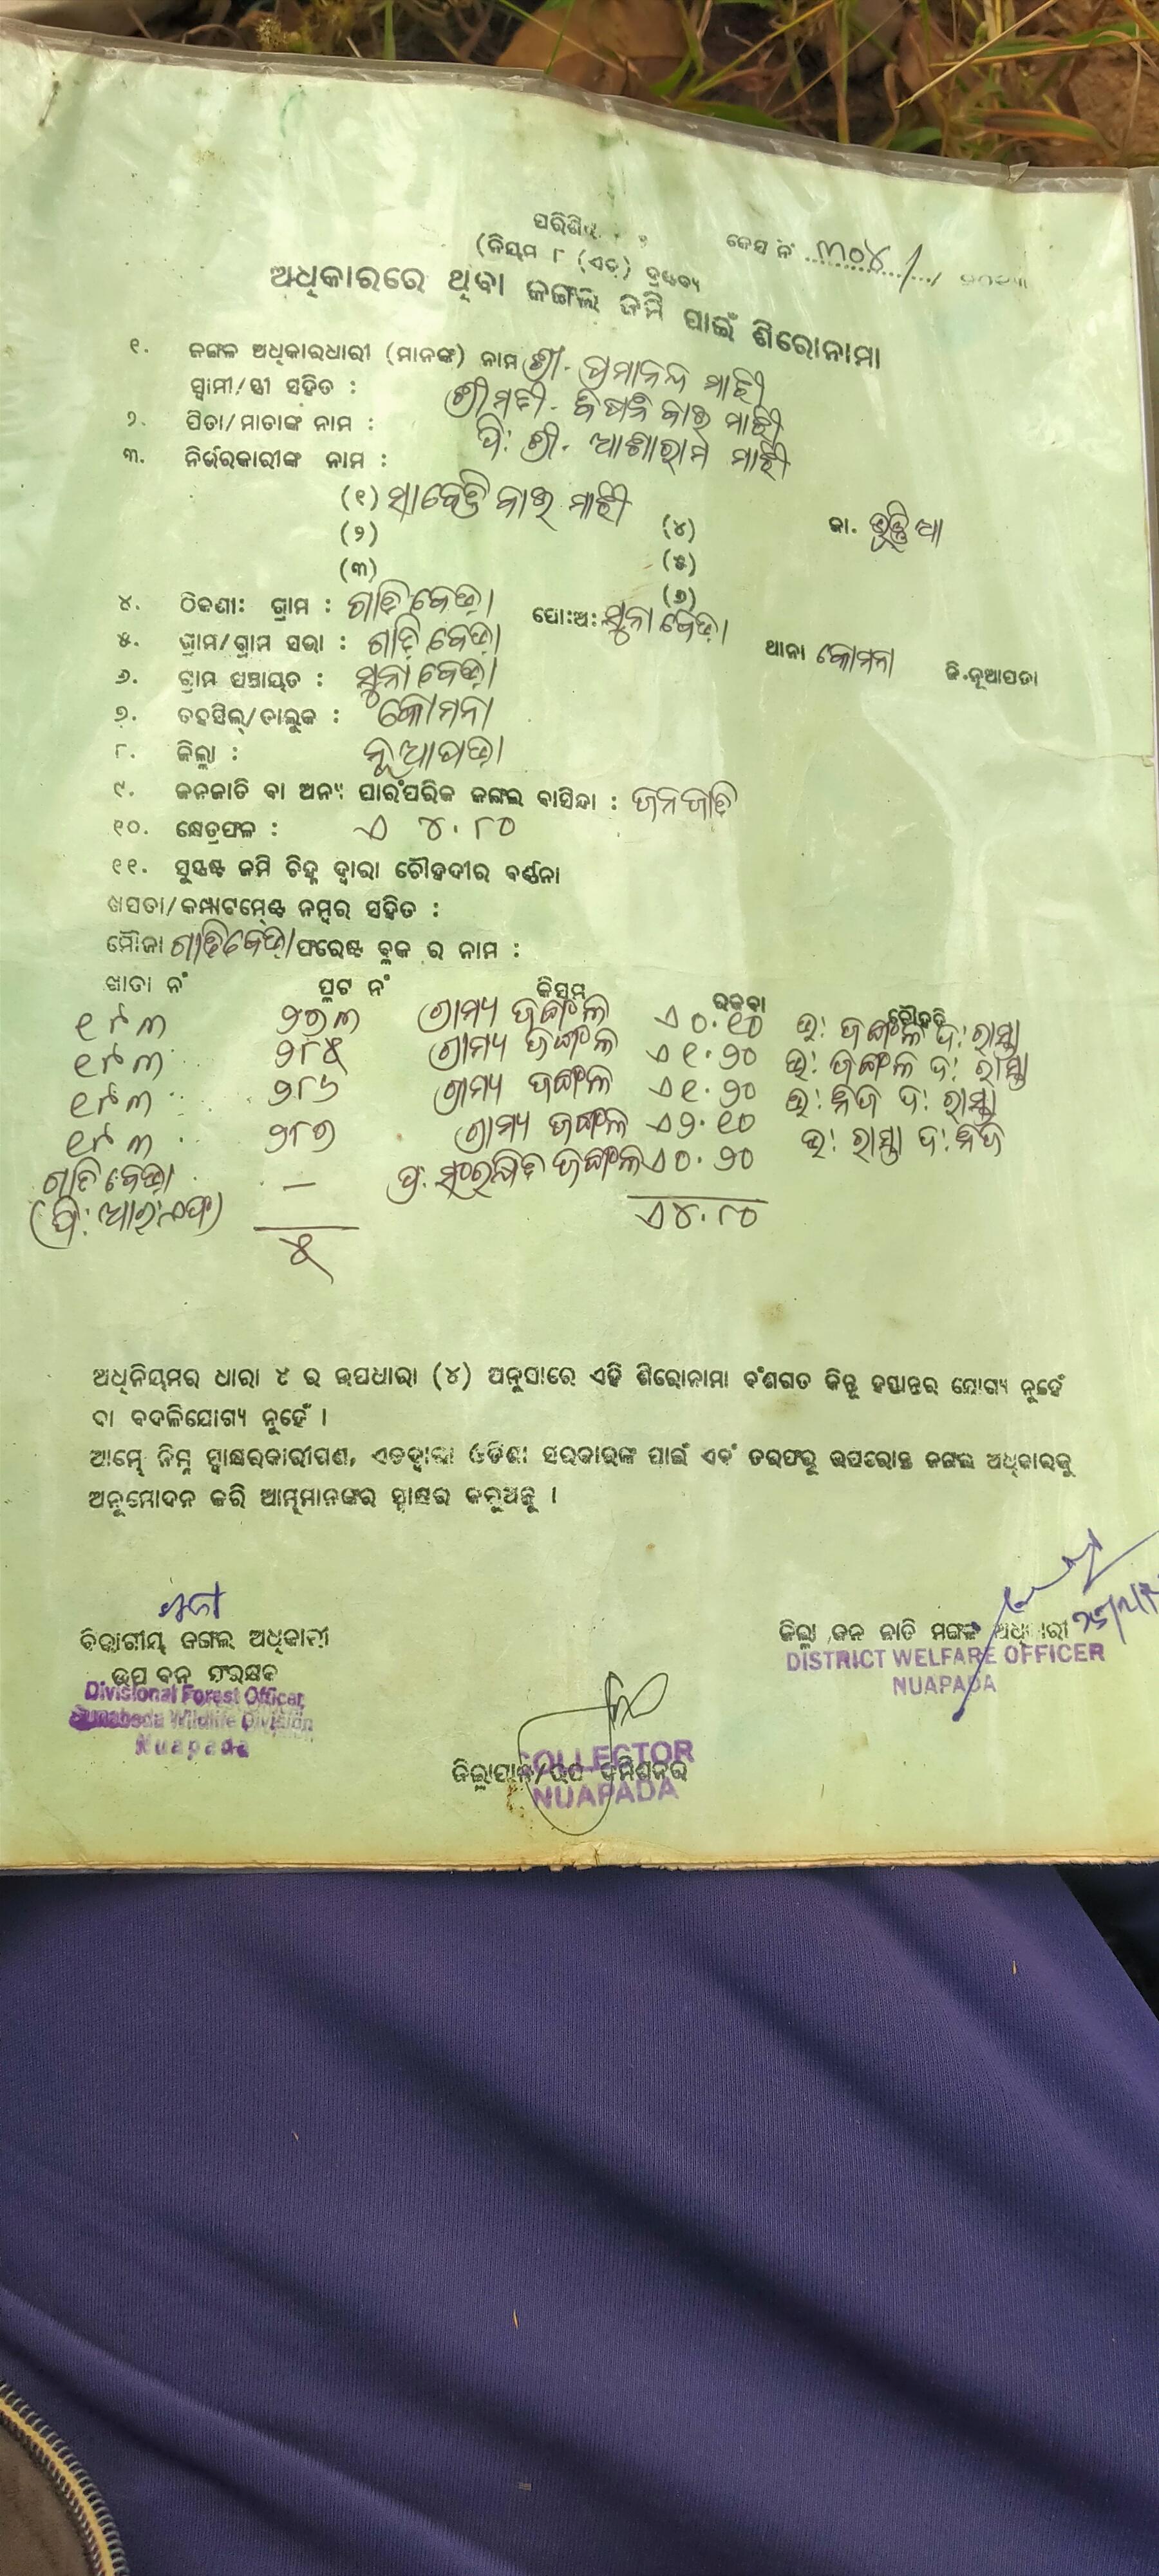 କେସ ନଂ ୩୦୪/
(ନିୟମ ୮ (ଏଚ) ଦ୍ରଷ୍ଟବ୍ୟ
ଅଧିକାରରେ ଥିବା ଜଙ୍ଗଲ ଜମି ପାଇଁ ଶିରୋନାମା
୧. ଜଙ୍ଗଳ ଅଧିକାରଧାରୀ (ମାନଙ୍କ) ନାମ ଶ୍ରୀ. ପ୍ରମାନନ୍ଦ ମାଝୀ
ସ୍ୱାମୀ/ସ୍ତ୍ରୀ ସହିତ : ଶ୍ରୀମତୀ. ବାଇ ମାଝୀ
୨. ପିତା/ମାତାଙ୍କ ନାମ : ପି: ଶ୍ରୀ. ଆଶାରାମ ମାଝୀ
୩. ନିର୍ଭରକାରୀଙ୍କ ନାମ :
(୧) ବାଇ ମାଝୀ (୪) ଜା. ଭୁଞ୍ଜିଆ
(୨) (୫)
(୩) (୬)
୪. ଠିକଣା: ଗ୍ରାମ : ଗାତିବେଡ଼ା ପୋ:ଅ: ସୁନାବେଡ଼ା ଥାନା କୋମନା ଜି.ନୂଆପଡା
୫. ଗ୍ରାମ/ଗ୍ରାମ ସଭା : ଗାତିବେଡ଼ା
୬. ଗ୍ରାମ ପଞ୍ଚାୟତ : ସୁନାବେଡ଼ା
୭. ତହସିଲ୍/ତାଲୁକ : କୋମନା
୮. ଜିଲ୍ଲା : ନୂଆପଡ଼ା
୯. ଜନଜାତି ବା ଅନ୍ୟ ପାରଂପରିକ ଜଙ୍ଗଲ ବାସିନ୍ଦା : ଜନଜାତି
୧୦. କ୍ଷେତ୍ରଫଳ : ଏ ୪.୮୦
୧୧. ସୁସ୍ପଷ୍ଟ ଜମି ଚିହ୍ନ ଦ୍ୱାରା ଚୌହଦୀର ବର୍ଣ୍ଣନା
ଖସଡା/କମ୍ପାଟମେଣ୍ଟ ନମ୍ବର ସହିତ :
ମୌଜା ଗାତିବେଡ଼ା ଫରେଷ୍ଟ ବ୍ଲକ ର ନାମ :
ଖାତା ନଂ ପ୍ଲଟ ନଂ କିସମ ରକବା ଚୌହଦି
୧୯୩ ୨୭୩ ଗ୍ରାମ୍ୟ ଜଙ୍ଗଲ ଏ ୦.୧୦ ଉ: ଜଙ୍ଗଲ ଦ: ରାସ୍ତା
୧୯୩ ୨୮୫ ଗ୍ରାମ୍ୟ ଜଙ୍ଗଲ ଏ ୧.୨୦ ଉ: ଜଙ୍ଗଲ ଦ: ରାସ୍ତା
୧୯୩ ୨୮୬ ଗ୍ରାମ୍ୟ ଜଙ୍ଗଲ ଏ ୧.୨୦ ଉ: ନିଜ ଦ: ରାସ୍ତା
୧୯୩ ୨୮୭ ଗ୍ରାମ୍ୟ ଜଙ୍ଗଲ ଏ ୨.୧୦ ଉ: ରାସ୍ତା ଦ: ନିଜ
ଗାତିବେଡ଼ା — ପ୍ର. ସଂରକ୍ଷିତ ଜଙ୍ଗଲ ଏ ୦.୨୦
(ପି: ଆର:ଏଫ) ୫ ଏ ୪.୮୦
ଅଧିନିୟମର ଧାରା ୪ ର ଉପଧାରା (୪) ଅନୁସାରେ ଏହି ଶିରୋନାମା ବଂଶଗତ କିନ୍ତୁ ହସ୍ତାନ୍ତର ଯୋଗ୍ୟ ନୁହେଁ
ବା ବଦଳିଯୋଗ୍ୟ ନୁହେଁ ।
ଆମ୍ଭେ ନିମ୍ନ ସ୍ୱାକ୍ଷରକାରୀଗଣ, ଏତଦ୍ୱାରା ଓଡିଶା ସରକାରଙ୍କ ପାଇଁ ଏବଂ ତରଫରୁ ଉପରୋକ୍ତ ଜଙ୍ଗଲ ଅଧିକାରକୁ
ଅନୁମୋଦନ କରି ଆମ୍ଭମାନଙ୍କର ସ୍ୱାକ୍ଷର କରୁଅଛୁ ।
ବିଭାଗୀୟ ଜଙ୍ଗଲ ଅଧିକାରୀ
ଉପ ବନ ସଂରକ୍ଷକ
Divisional Forest Officer
Sunabeda Wildlife Division
Nuapada
ଜିଲ୍ଲା ଜନ ଜାତି ମଙ୍ଗଳ ଅଧିକାରୀ
DISTRICT WELFARE OFFICER
NUAPADA
COLLECTOR
ଜିଲ୍ଲାପାଳ/ଉପ କମିଶନର
NUAPADA